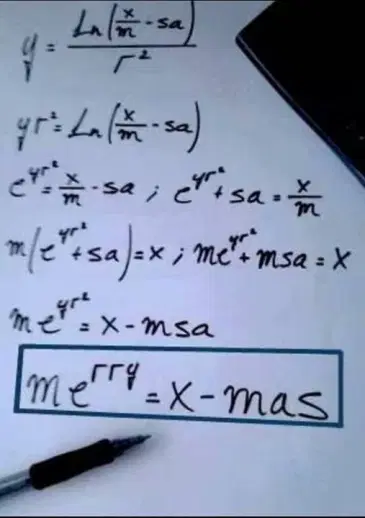 y = Ln(x/m - sa) / r²
yr² = Ln(x/m - sa)
e^yr² = x/m - sa ; e^yr² + sa = x/m
m(e^yr² + sa) = x ; me^yr² + msa = x
me^yr² = x - msa
me^rry = x - mas